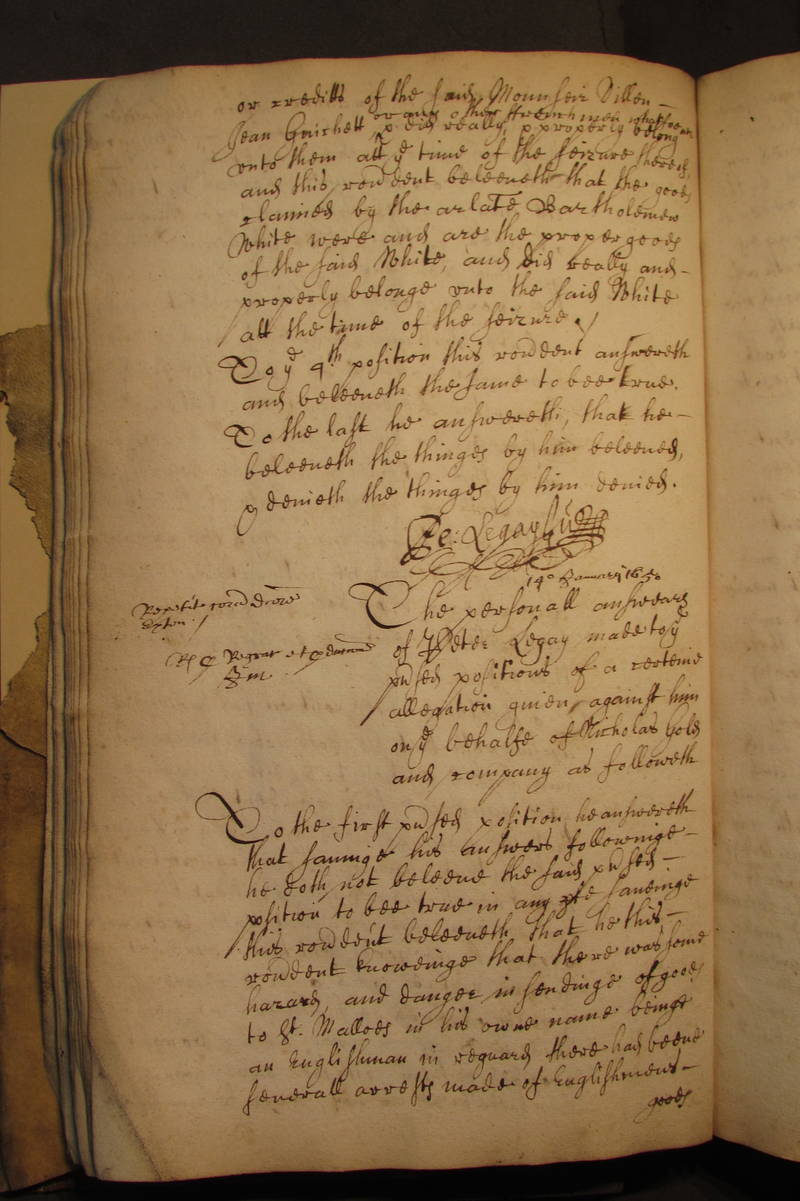 or creditts of the said Mounseir Dillen -
Jean Guichett or anie other Frenchmen whatsoever
p did really, p properly belong
unto them att ye time of the seizure thereof
and this rondent beleeveth that the goods
claimed by the arlate Bartholemew
White were and are the proper goods
of the said White, and did really and -
properly belonge unto the said White
att the time of the seizure ./
To ye 4th position this rondent answereth
and beleeveth the same to bee true.
To the last he answereth, that he -
beleeveth the thinges by him beleeved,
& denieth the thinges by him denied.
Pe: Legay
14o January 165
The personall answeares
Repetit coram
of Peter Legay made to ye
pnsed positions of a certeine
allegation given against him
on ye behalfe of Nicholas Gold
and company as followeth
To the first pnsed position he answereth
that saveinge his answers followinge -
he doth not beleeve the said pnsed -
position to bee true in any pte saveinge
this rondent beleeveth that he this -
rondent knoweinge that there was some
hazard, and danger in sendinge of goods
to St. Malloes in his owne name beinge
an Englishman in reguard there had beene
severall arrests made of Englishmens -
goods